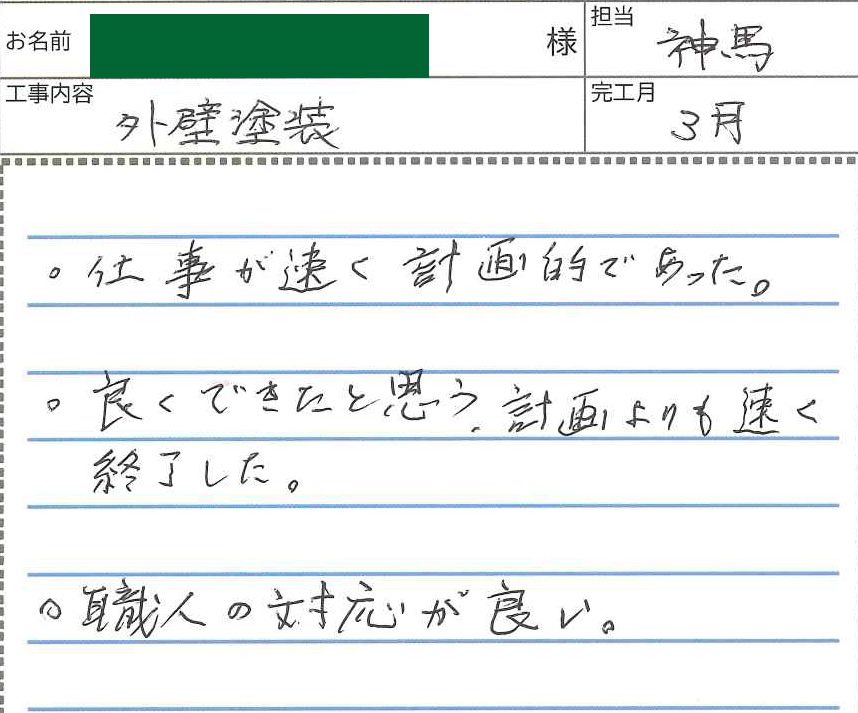 お名前 様 担当 神馬
工事内容 外壁塗装 完工月 3月
。仕事が速く計画的であった。
。良くできたと思う、計画よりも速く
終了した。
。職人の対応が良い。